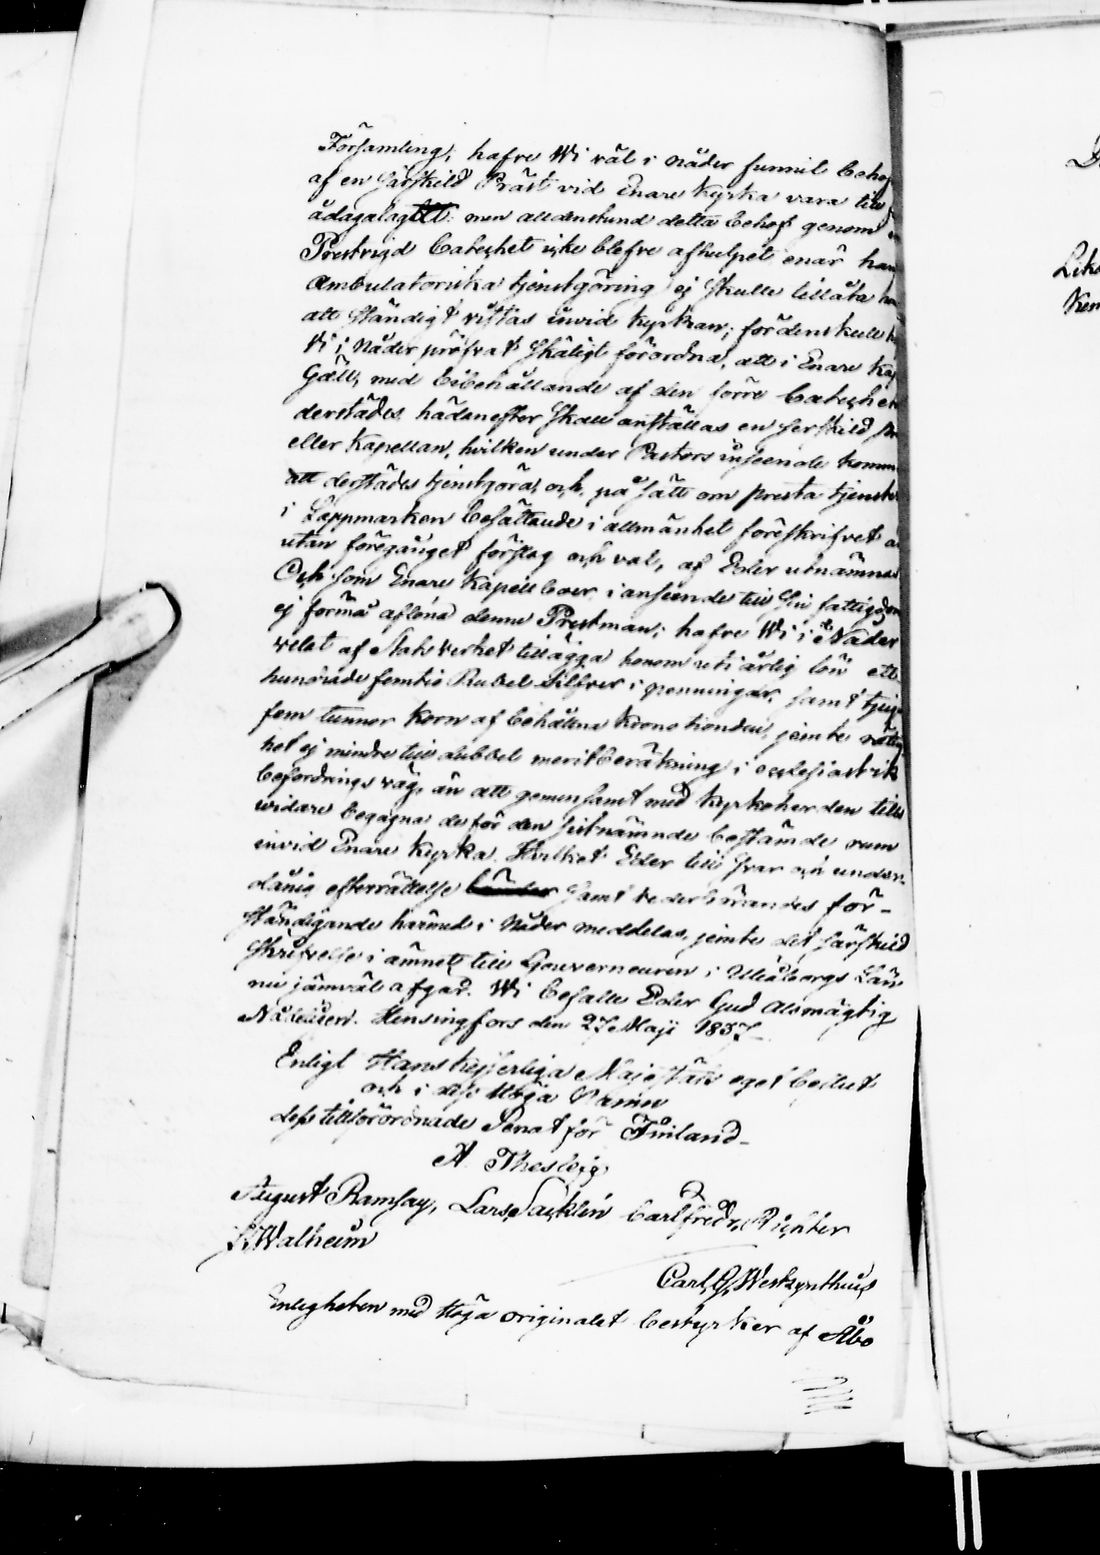 Församling, hafve Wi väl i nåder funnit behof
af en särskild Präst vid Enare Kyrka vara till
ådagalagdt: men alldenstund detta behof genom
Prestvigd Catechet icke blefve afhulpet enär hans
Ambulatoriska tjenstgöring ej skulle tillåta
att ständigt vistas invid kyrkan; fördenskull
Wi i Nåder pröfvat skäligt förordna, att i Enare Kap
Gäll, med bibehållande af den förre Cateche
derstädes hädanefter skall anställas en serskild
eller Kapellan, hvilken under Pastors inseende komm
att derstädes tjenstgöra, och, på sätt om presta tjenster
i Lappmarken besättande i allmänhet föreskrifvet
utan föregånget förslag och val, af Eder utnämnas
Och som Enare Kapellboer i anseende till sin fattigdom
ej förmå aflöna denne Prestman; hafve Wi i Nåder
velat af Statsverket tillägga honom uti årlig lön ett
hundrade femtio Rubel Silfver i penningar, samt tjug
fem tunnor Korn af behållna Kronotionden, jemte rättig
het ej mindre till dubbel meritberäkning i ecclesiastik
befordrings väg, än att gemensamt med Kyrkoherden tills
widare begagna de för den sistnämnde bestämde rum
invid Enare Kyrka. Hvilket Eder till svar och under-
dånig efterrättelse samt vederbörandes för-
ständigande härmed i Nåder meddelas, jemte det särskild
skrifvelse i ämnet till Gouverneuren i Uleåborgs Län
nu jämväl afgår. Wi befalle Eder Gud Alsmägtig
Nådeligen. Helsingfors den 27 Maji 1837
Enligt Hans Kejserliga Majestäts eget beslut
och i dess Höga Namn
dess tillförordnade Senat för Finland-
A. Thesleff
August Ramsay, Lars Sacklén Carl Fredr. Richter
Walheim
Carl G. Westzynthius
Enligheten med Höga originalet bestyrker af Åbo
Kem